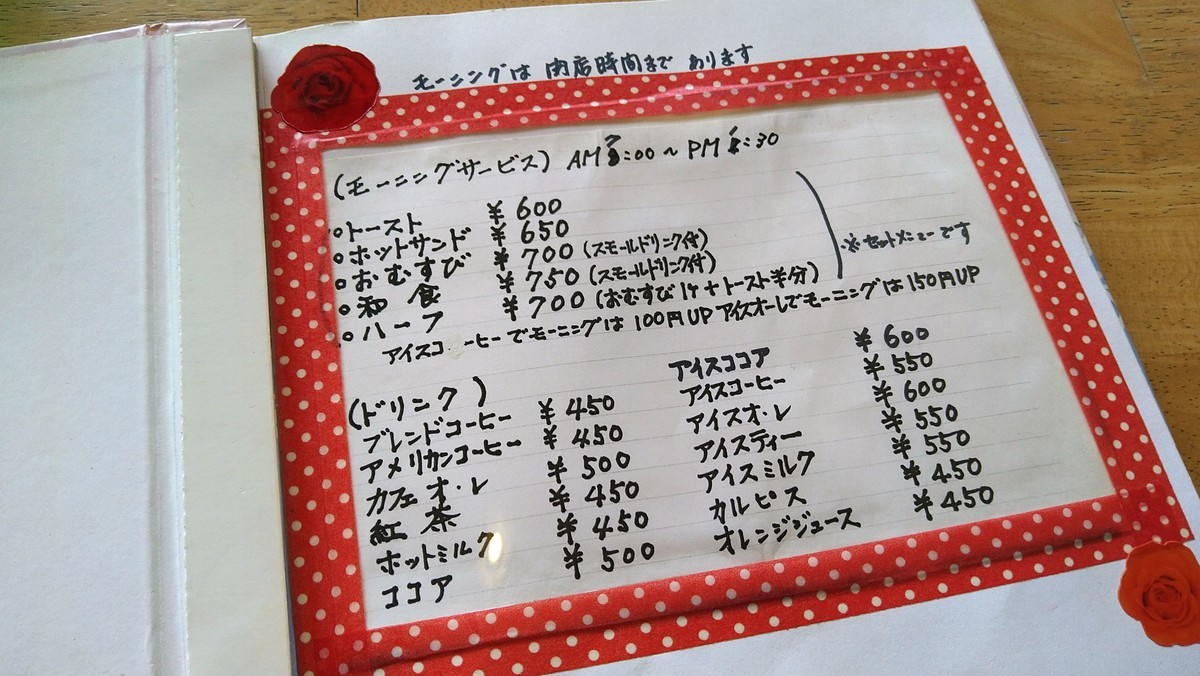 モーニングは 閉店時間まで あります
(モーニングサービス) AM :00 ~ PM :30
○トースト ¥600
○ホットサンド ¥650
○おむすび ¥700 (スモールドリンク付)
○和 食 ¥750 (スモールドリンク付)
○ハーフ ¥700 (おむすび1ケ+トースト半分)
※セットメニューです
アイスコーヒーでモーニングは100円UP アイスオーレでモーニングは150円UP
(ドリンク)
ブレンドコーヒー ¥450
アメリカンコーヒー ¥450
カフェオ・レ ¥500
紅 茶 ¥450
ホットミルク ¥450
ココア ¥500
アイスココア ¥600
アイスコーヒー ¥550
アイスオ・レ ¥600
アイスティー ¥550
アイスミルク ¥550
カルピス ¥450
オレンジジュース ¥450